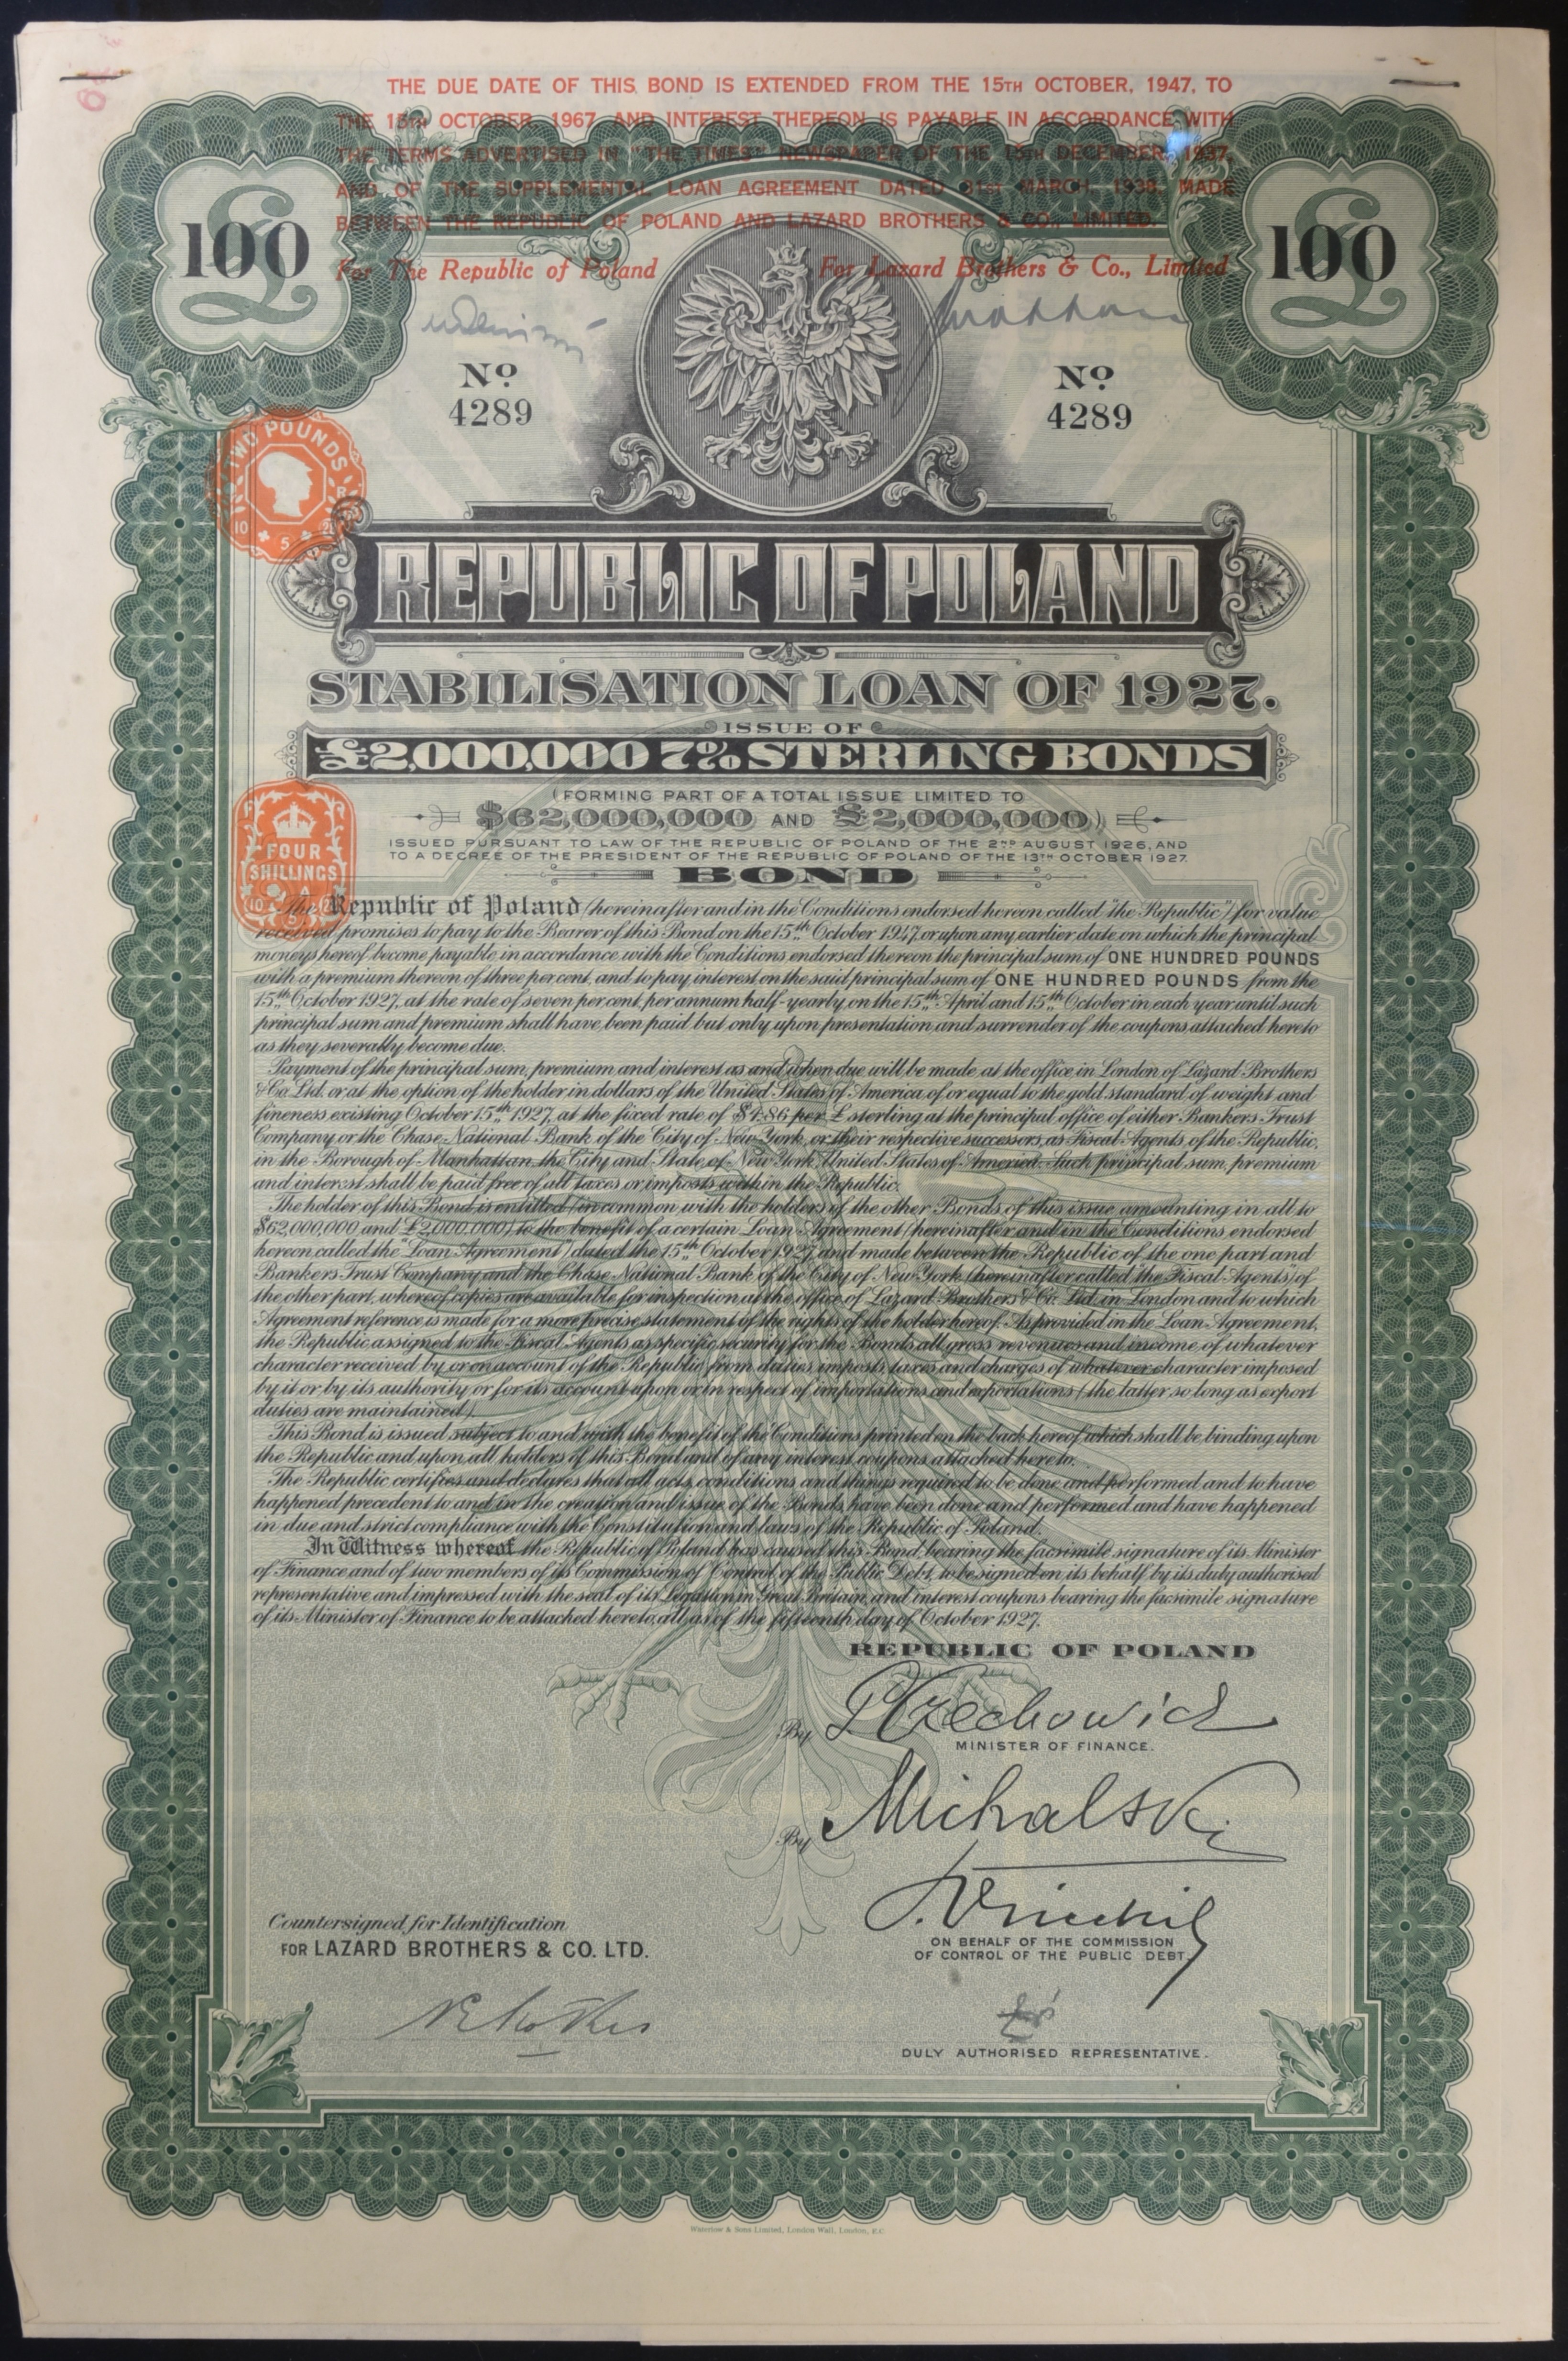 THE DUE DATE OF THIS BOND IS EXTENDED FROM THE 15TH OCTOBER, 1947, TO
THE 15TH OCTOBER, 1967, AND INTEREST THEREON IS PAYABLE IN ACCORDANCE WITH
THE TERMS ADVERTISED IN "THE TIMES" NEWSPAPER OF THE 15TH DECEMBER, 1937,
AND OF THE SUPPLEMENTAL LOAN AGREEMENT DATED 31ST MARCH, 1938, MADE
BETWEEN THE REPUBLIC OF POLAND AND LAZARD BROTHERS & CO., LIMITED.
For The Republic of Poland For Lazard Brothers & Co., Limited
£100 £100
No 4289 No 4289
TWO POUNDS
10 5 28
REPUBLIC OF POLAND
STABILISATION LOAN OF 1927.
ISSUE OF
£2,000,000 7% STERLING BONDS
(FORMING PART OF A TOTAL ISSUE LIMITED TO
$62,000,000 AND £2,000,000)
ISSUED PURSUANT TO LAW OF THE REPUBLIC OF POLAND OF THE 2ND AUGUST 1926, AND
TO A DECREE OF THE PRESIDENT OF THE REPUBLIC OF POLAND OF THE 13TH OCTOBER 1927.
BOND
FOUR
SHILLINGS
The Republic of Poland (hereinafter and in the Conditions endorsed hereon called "the Republic") for value
received promises to pay to the Bearer of this Bond on the 15th October 1947, or upon any earlier date on which the principal
moneys hereof become payable in accordance with the Conditions endorsed thereon the principal sum of ONE HUNDRED POUNDS
with a premium thereon of three per cent, and to pay interest on the said principal sum of ONE HUNDRED POUNDS from the
15th October 1927, at the rate of seven per cent, per annum half-yearly, on the 15th April and 15th October in each year until such
principal sum and premium shall have been paid but only upon presentation and surrender of the coupons attached hereto
as they severally become due.
Payment of the principal sum, premium and interest as and when due will be made at the office in London of Lazard Brothers
& Co. Ltd. or at the option of the holder in dollars of the United States of America of or equal to the gold standard of weight and
fineness existing October 15th 1927, at the fixed rate of $4·86 per £ sterling at the principal office of either Bankers Trust
Company or the Chase National Bank of the City of New York, or their respective successors, as Fiscal Agents of the Republic,
in the Borough of Manhattan, the City and State of New York, United States of America. Such principal sum, premium
and interest shall be paid free of all taxes or imposts within the Republic.
The holder of this Bond is entitled (in common with the holders of the other Bonds of this issue amounting in all to
$62,000,000 and £2,000,000) to the benefit of a certain Loan Agreement (hereinafter and in the Conditions endorsed
hereon called the "Loan Agreement") dated the 15th October 1927, and made between the Republic of the one part and
Bankers Trust Company and the Chase National Bank of the City of New York (hereinafter called "the Fiscal Agents") of
the other part, whereof copies are available for inspection at the office of Lazard Brothers & Co. Ltd. in London and to which
Agreement reference is made for a more precise statement of the rights of the holder hereof. As provided in the Loan Agreement,
the Republic assigned to the Fiscal Agents as specific security for the Bonds all gross revenues and income of whatever
character received by or on account of the Republic from duties, imposts, taxes and charges of whatever character imposed
by it or by its authority or for its account upon or in respect of importations and exportations (the latter so long as export
duties are maintained).
This Bond is issued subject to and with the benefit of the Conditions printed on the back hereof which shall be binding upon
the Republic and upon all holders of this Bond and of any interest coupons attached hereto.
The Republic certifies and declares that all acts, conditions and things required to be done and performed and to have
happened precedent to and in the creation and issue of the Bonds, have been done and performed and have happened
in due and strict compliance with the Constitution and laws of the Republic of Poland.
In Witness whereof the Republic of Poland has caused this Bond, bearing the facsimile signature of its Minister
of Finance and of two members of its Commission of Control of the Public Debt, to be signed on its behalf by its duly authorised
representative and impressed with the seal of its Legation in Great Britain, and interest coupons bearing the facsimile signature
of its Minister of Finance to be attached hereto, all as of the fifteenth day of October 1927.
REPUBLIC OF POLAND
By Czechowicz
MINISTER OF FINANCE.
By Michalski
ON BEHALF OF THE COMMISSION
OF CONTROL OF THE PUBLIC DEBT.
Countersigned for Identification
FOR LAZARD BROTHERS & CO. LTD.
DULY AUTHORISED REPRESENTATIVE.
Waterlow & Sons Limited, London Wall, London, E.C.